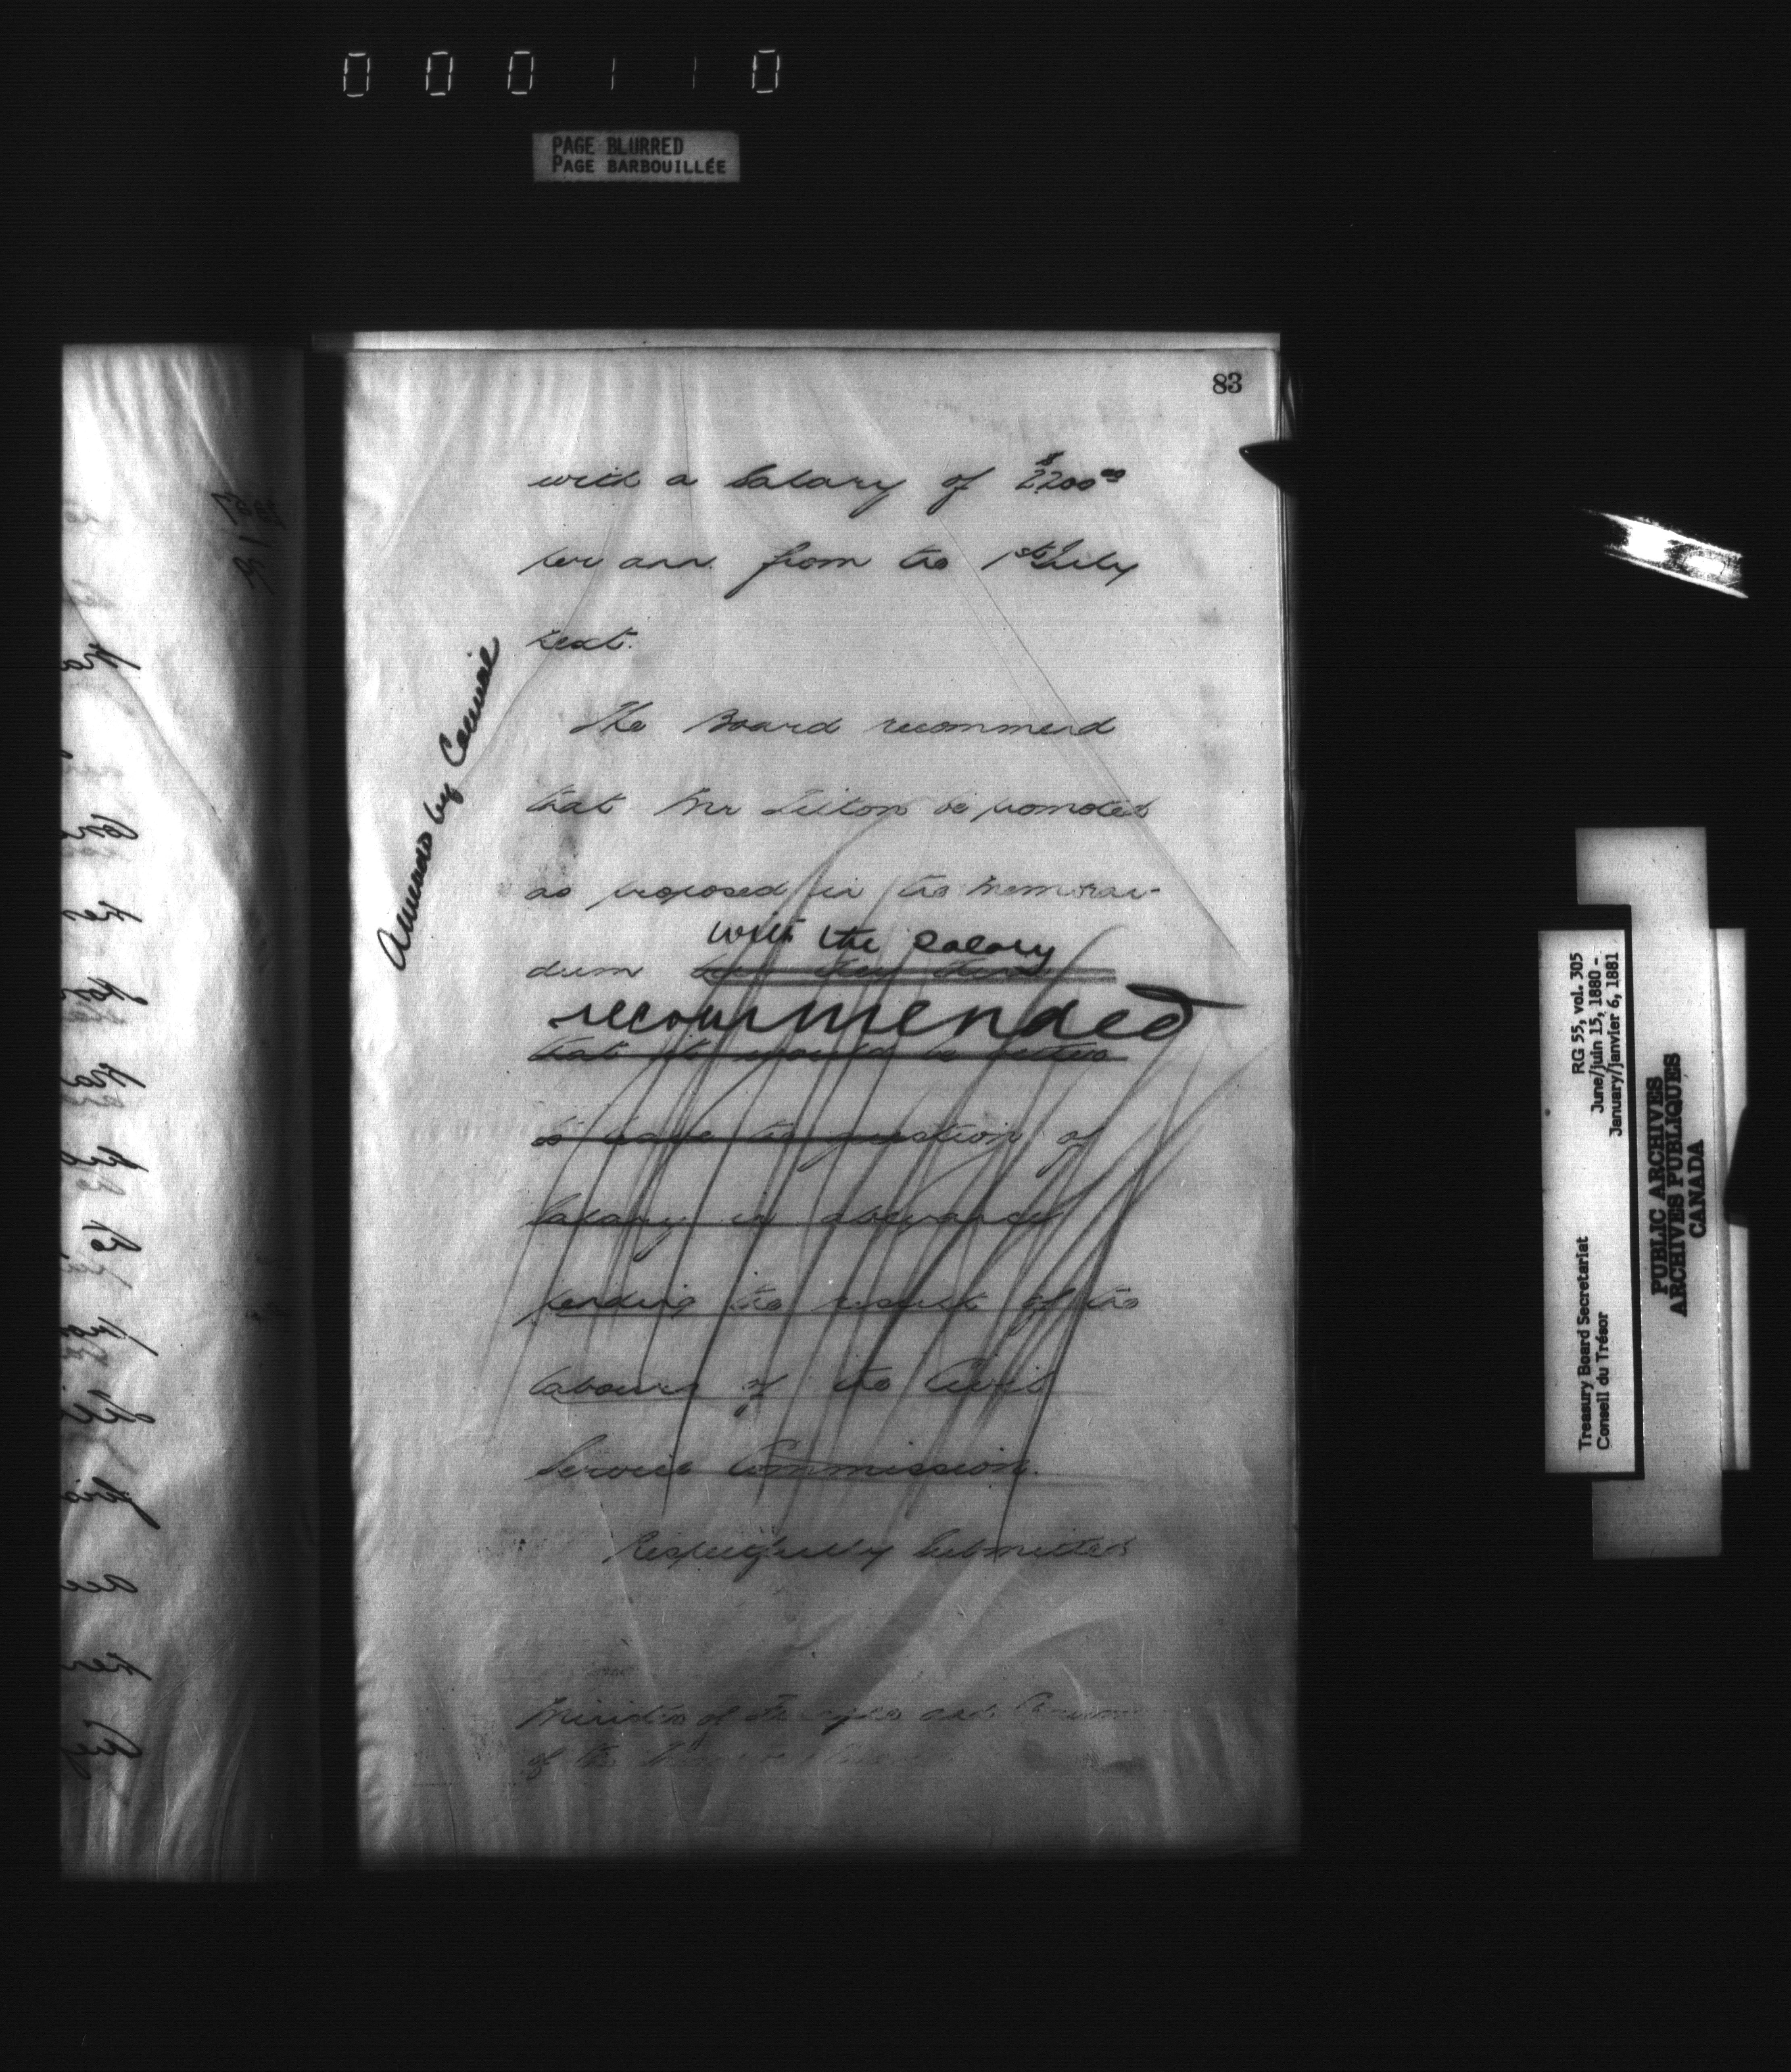 000110
PAGE BLURRED
PAGE BARBOUILLÉE
83
with a Salary of $2200.00
per ann. from the 1st July
next.
The Board recommend
that Mr Tilton be promoted
as proposed in the Memoran-
with the salary
dum but they think
recommended
that it would be better
to leave the question of
Salary in abeyance
pending the result of the
labours of the Civil
Service Commission.
Respectfully Submitted
Minister of and
of the
Amended by Council
RG 55, vol. 305
June/juin 15, 1880 -
January/janvier 6, 1881
Treasury Board Secretariat
Conseil du Trésor
PUBLIC ARCHIVES
ARCHIVES PUBLIQUES
CANADA